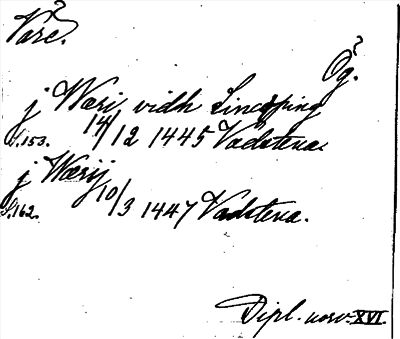 ?
Väre.
?
Ög.
j Wæri vidh Lincøping
S. 153. 14/12 1445 Vadstena.
j Wærij
S. 162. 10/3 1447 Vadstena.
Dipl. norv. XVI.